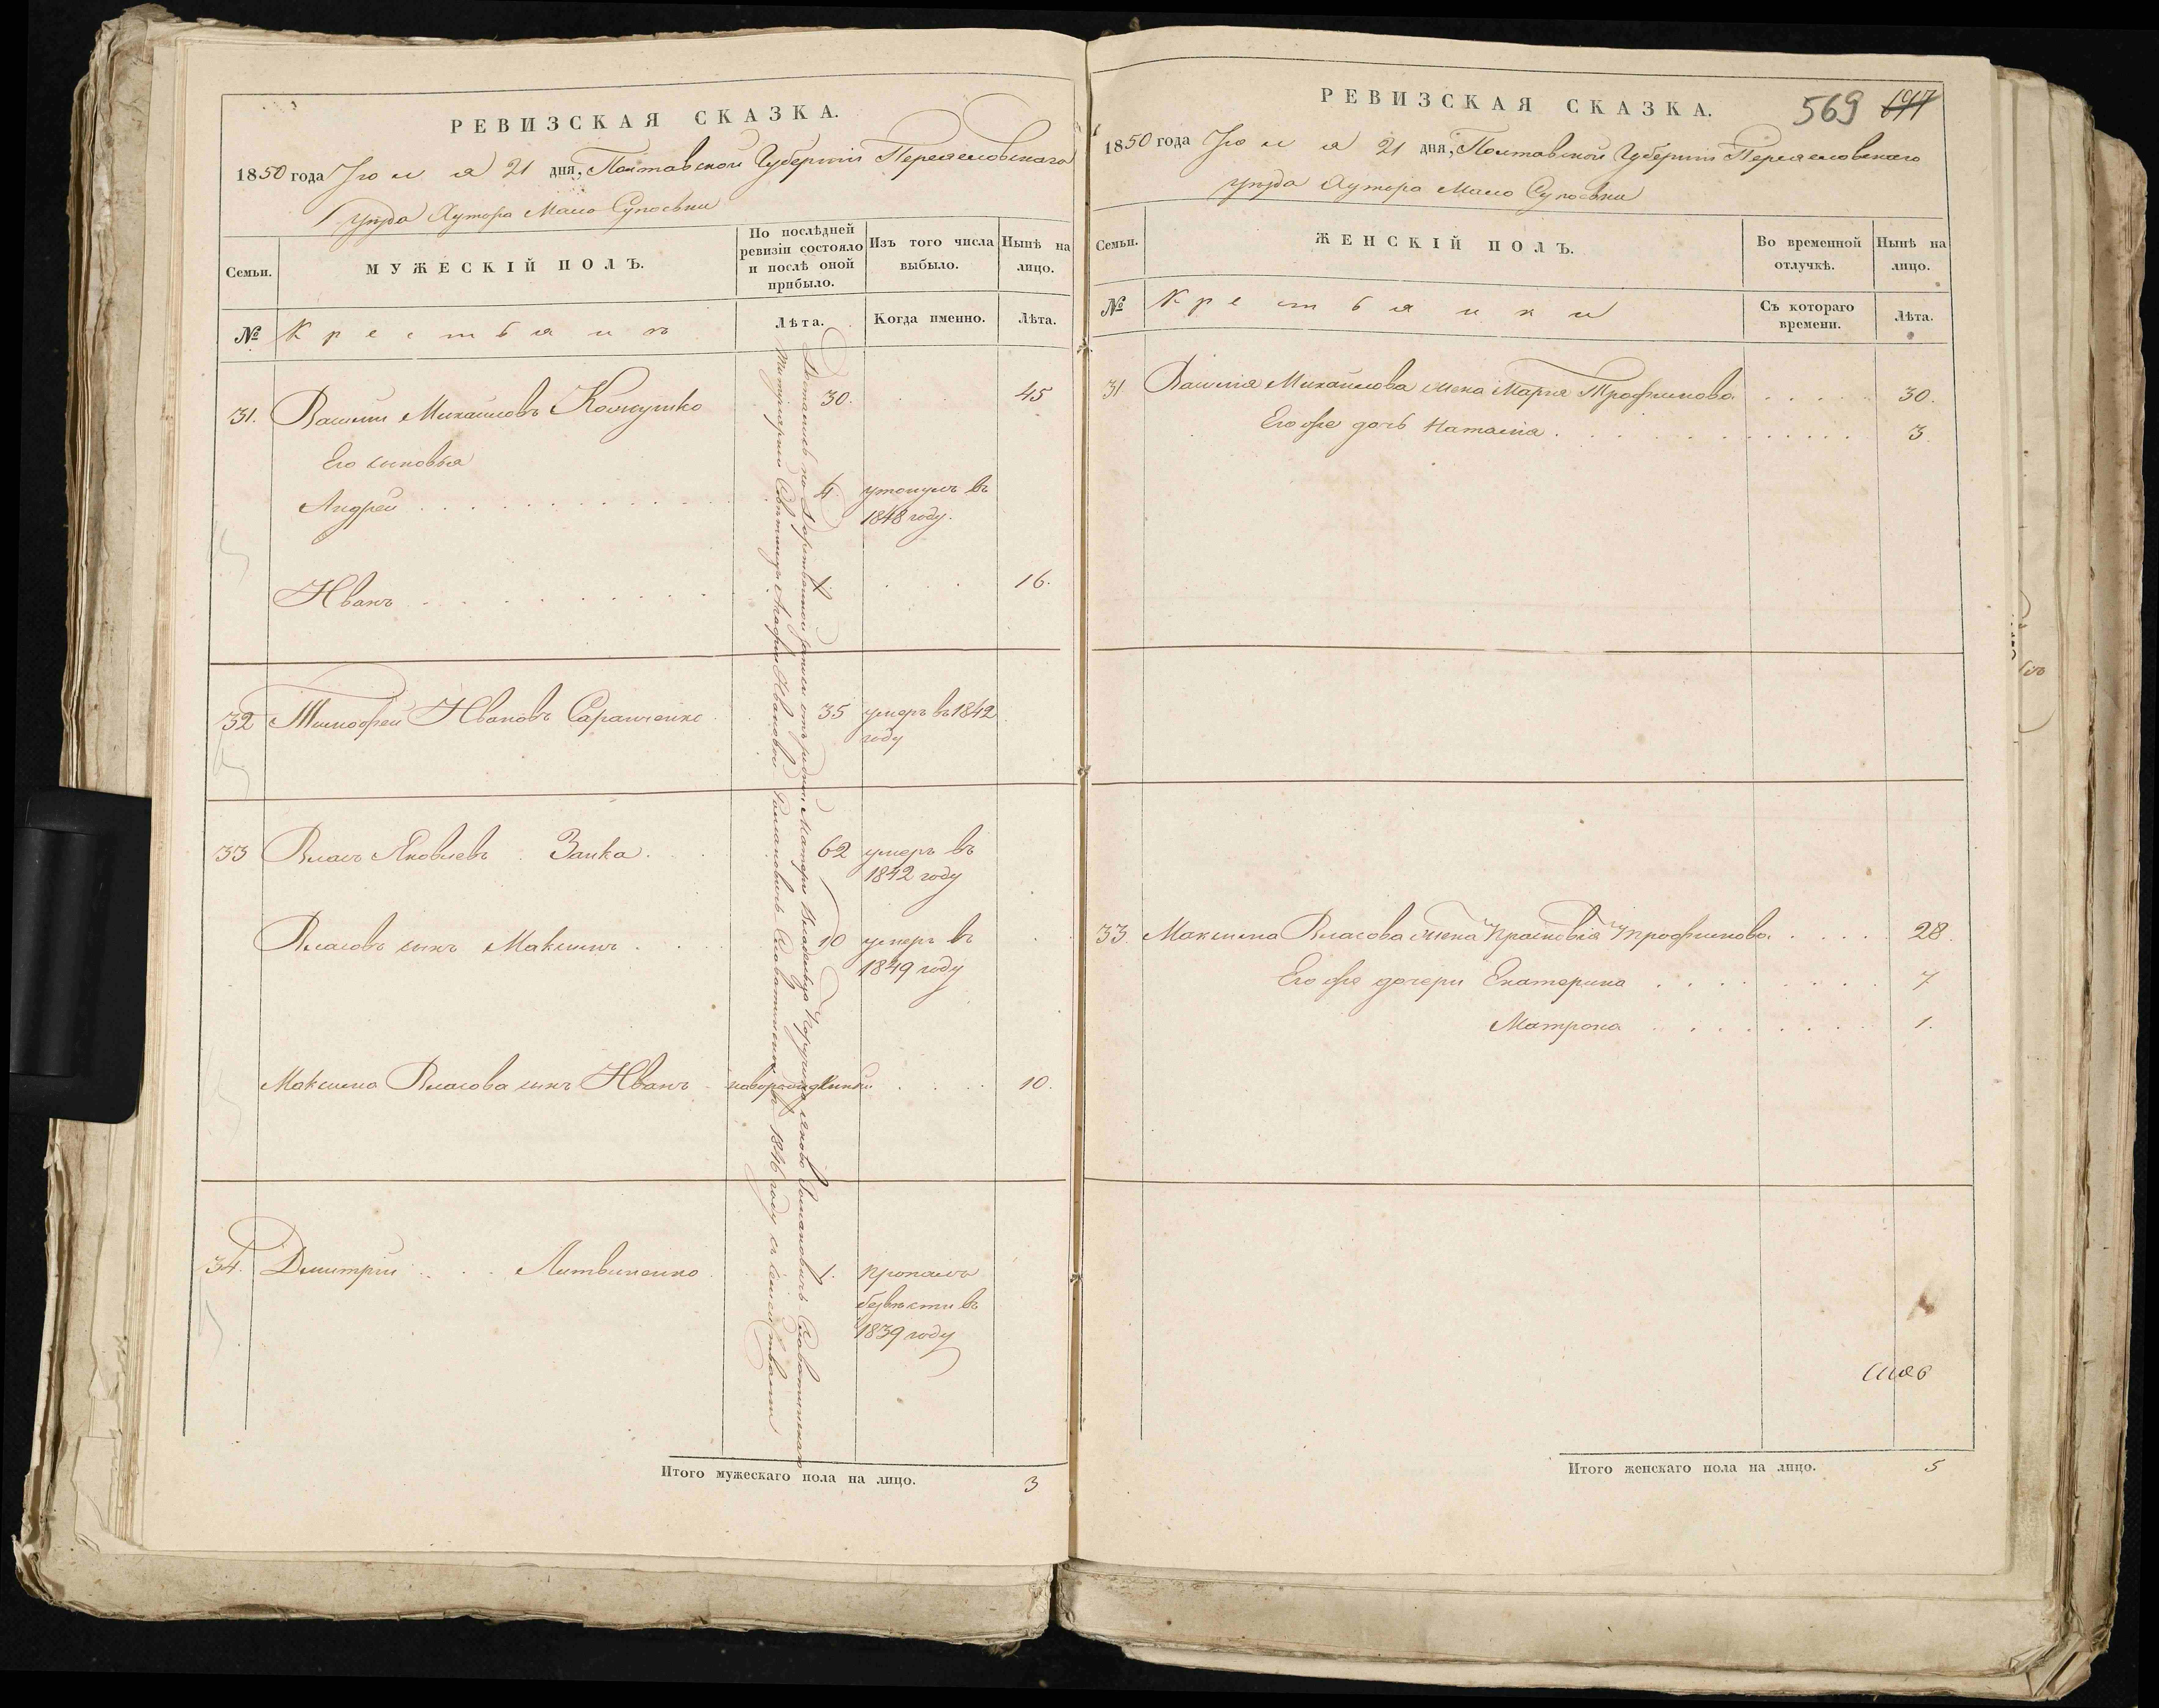 РЕВИЗСКАЯ СКАЗКА.
1850 года Іюля 21 дня, Полтавской Губерніи Переяславскаго
уезда Хутора Мало Супоевки
Семьи.
МУЖЕСКІЙ ПОЛЪ.
По послѣдней
ревизіи состояло
и послѣ оной
прибыло.
Изъ того числа
выбыло.
Нынѣ на
лицо.
№
Крестьянъ
Лѣта.
Когда именно.
Лѣта.
31. Василій Михайловъ 30. 45
Его сыновья
Андрей 4 утонулъ въ
1848 году.
Иванъ 1 16.
32 Тимофей Ивановъ Саранченко 35 умеръ въ 1842
году
33 Власъ Яковлевъ Заика. 62 умеръ въ
1842 году
Власовъ сынъ Максимъ 10 умеръ въ
1849 году
Максима Власова сынъ Иванъ новорожденный 10.
34. Дмитрій Литвиненко 1. пропалъ
безвѣсти въ
1839 году
Достались по отъ Матери Владельца Поручика Якова Романовича
Агафіи Ивановой 1846 году
Итого мужескаго пола на лицо. 3
РЕВИЗСКАЯ СКАЗКА.
569
1850 года Іюля 21 дня, Полтавской Губерніи Переяславскаго
уезда Хутора Мало Супоевки
Семьи.
ЖЕНСКІЙ ПОЛЪ.
Во временной
отлучкѣ.
Нынѣ на
лицо.
№
Крестьянки
Съ котораго
времени.
Лѣта.
31 Василія Михайлова жена Марія Трофимова 30.
Его же дочь Наталія 3.
33 Максима Власова жена Прасковія Трофимова 28.
Его же дочери Екатерина 7
Матрона 1.
Итого женскаго пола на лицо. 5